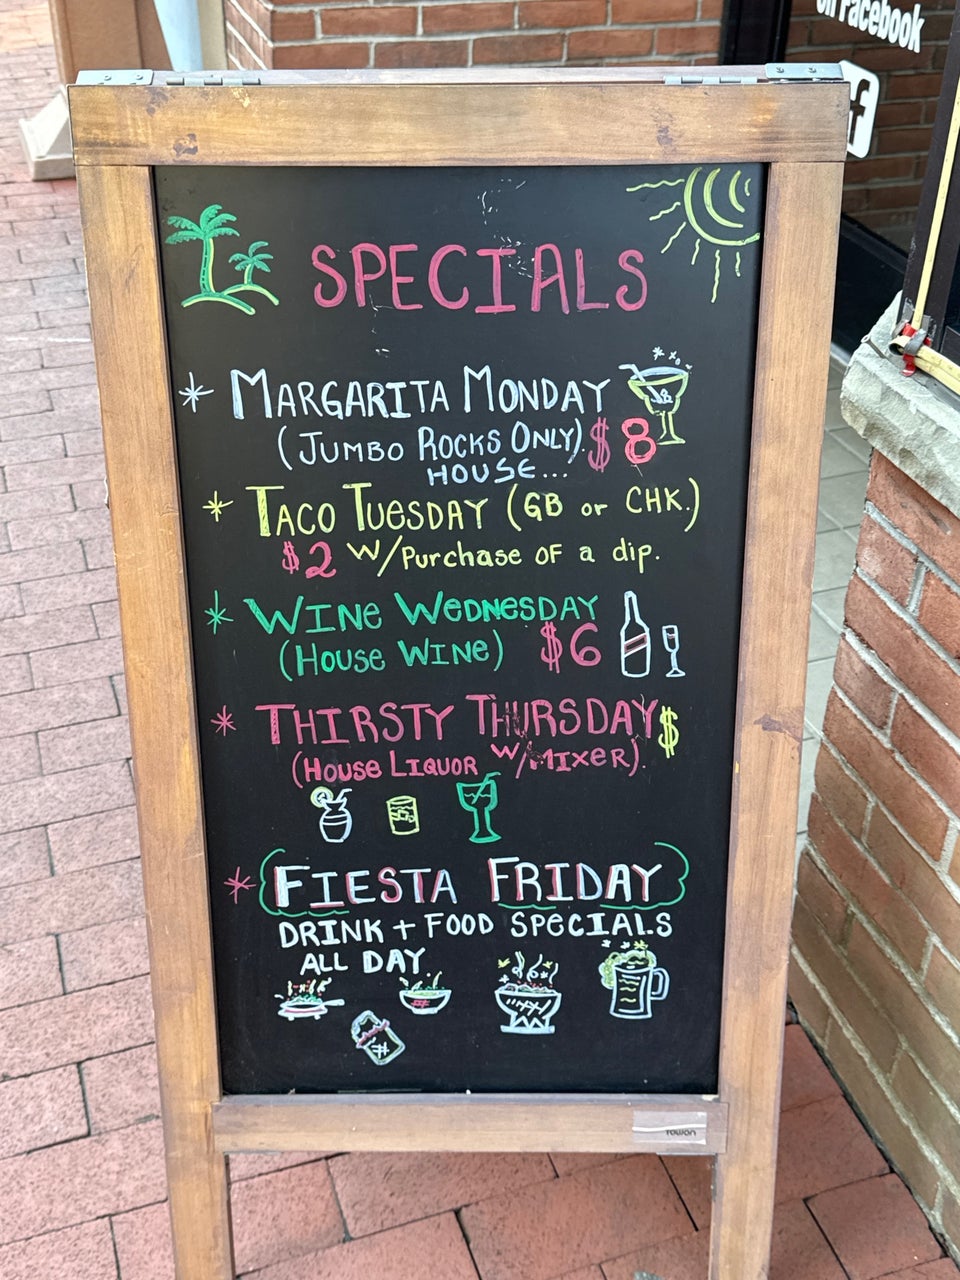 on Facebook
f
SPECIALS
MARGARITA MONDAY
(JUMBO ROCKS ONLY). $8
HOUSE...
TACO TUESDAY (GB or CHK.)
$2 W/Purchase OF a dip.
WINE WEDNESDAY
(HOUSE WINE) $6
THIRSTY THURSDAY $
(HOUSE LIQUOR W/MIXER).
FIESTA FRIDAY
DRINK + FOOD SPECIALS
ALL DAY